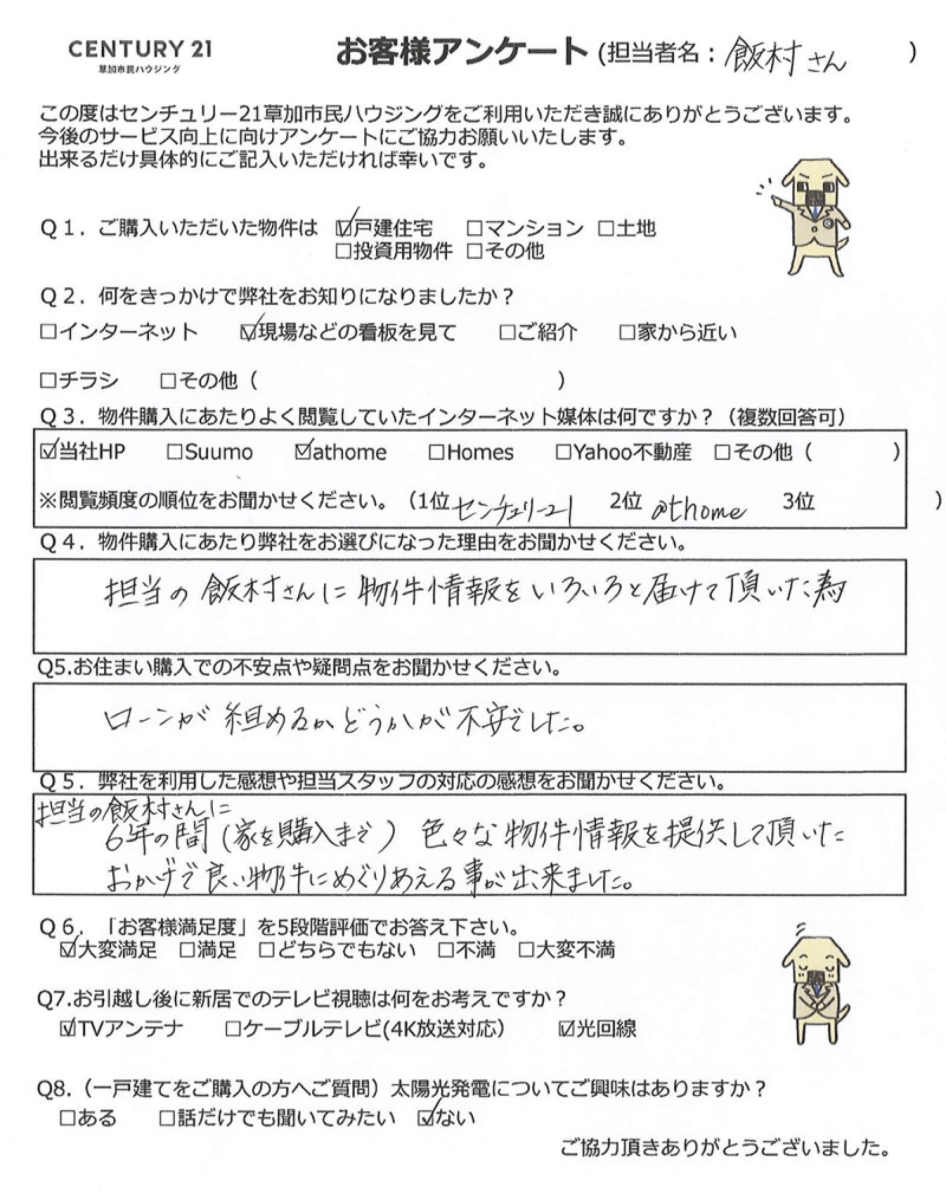 CENTURY 21
草加市民ハウジング
お客様アンケート(担当者名：飯村さん )
この度はセンチュリー21草加市民ハウジングをご利用いただき誠にありがとうございます。
今後のサービス向上に向けアンケートにご協力お願いいたします。
出来るだけ具体的にご記入いただければ幸いです。
Ｑ１．ご購入いただいた物件は ☑戸建住宅 □マンション □土地
□投資用物件 □その他
Ｑ２．何をきっかけで弊社をお知りになりましたか？
□インターネット ☑現場などの看板を見て □ご紹介 □家から近い
□チラシ □その他（ ）
Ｑ３．物件購入にあたりよく閲覧していたインターネット媒体は何ですか？（複数回答可）
☑当社HP □Suumo ☑athome □Homes □Yahoo不動産 □その他（ ）
※閲覧頻度の順位をお聞かせください。（1位 センチュリー21 2位 @thome 3位 ）
Ｑ４．物件購入にあたり弊社をお選びになった理由をお聞かせください。
担当の飯村さんに物件情報をいろいろと届けて頂いた為
Q5.お住まい購入での不安点や疑問点をお聞かせください。
ローンが組めるかどうかが不安でした。
Ｑ５．弊社を利用した感想や担当スタッフの対応の感想をお聞かせください。
担当の飯村さんに
6年の間（家を購入まで）色々な物件情報を提供して頂いた
おかげで良い物件にめぐりあえる事が出来ました。
Ｑ６．「お客様満足度」を5段階評価でお答え下さい。
☑大変満足 □満足 □どちらでもない □不満 □大変不満
Q7.お引越し後に新居でのテレビ視聴は何をお考えですか？
☑TVアンテナ □ケーブルテレビ(4K放送対応） ☑光回線
Q8.（一戸建てをご購入の方へご質問）太陽光発電についてご興味はありますか？
□ある □話だけでも聞いてみたい ☑ない
ご協力頂きありがとうございました。